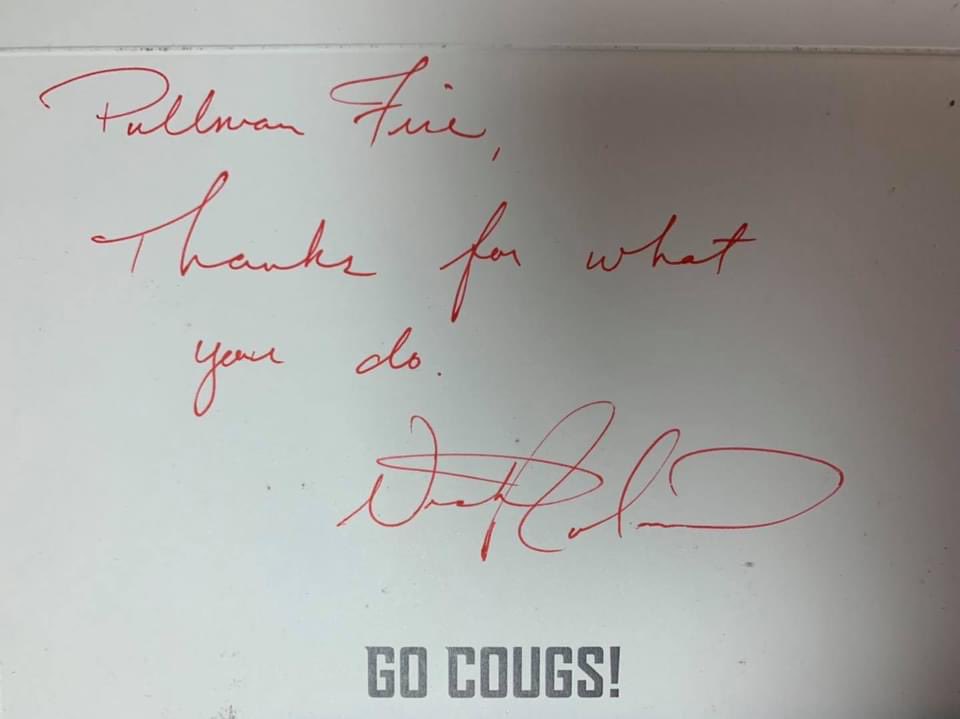 Pullman Fire,
Thanks for what
you do.
Nick Rolovich
GO COUGS!